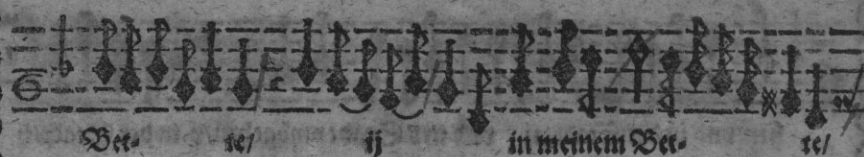 Bet- te/ ij in meinem Bet- te/